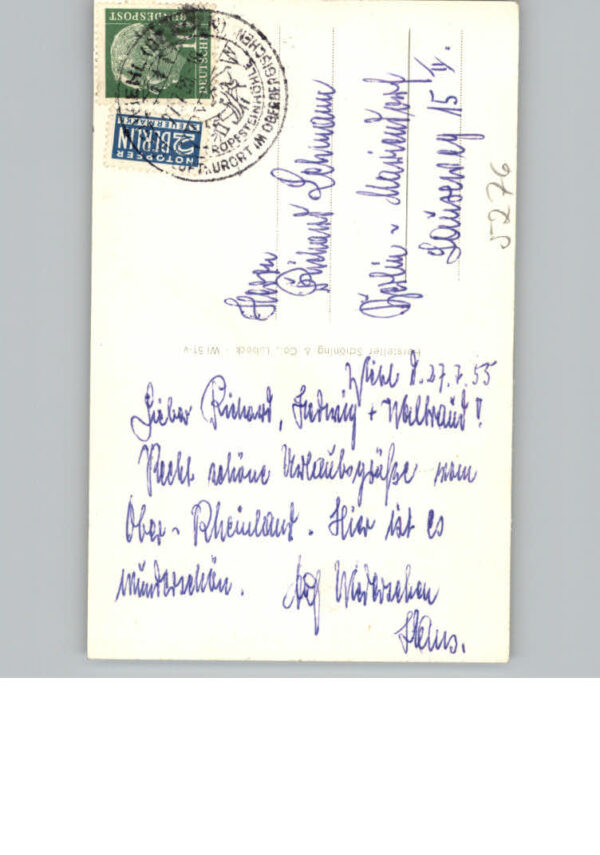 DEUTSCHE
BUNDESPOST
10
NOTOPFER
2 BERLIN
STEUERMARKE
TROPFSTEINHÖHLE
LUFTKURORT IM OBERBERGISCHEN
Herrn
Richard Lehmann
Berlin - Mariendorf
15 IV.
5276
Hersteller Schöning & Co., Lübeck · Wi 51-v
Wiehl d. 27.7.55
Lieber Richard, Hedwig + Waltraud!
Recht schöne Urlaubsgrüße vom
Ober-Rheinland. Hier ist es
wunderschön. Auf Wiedersehen
Hans.